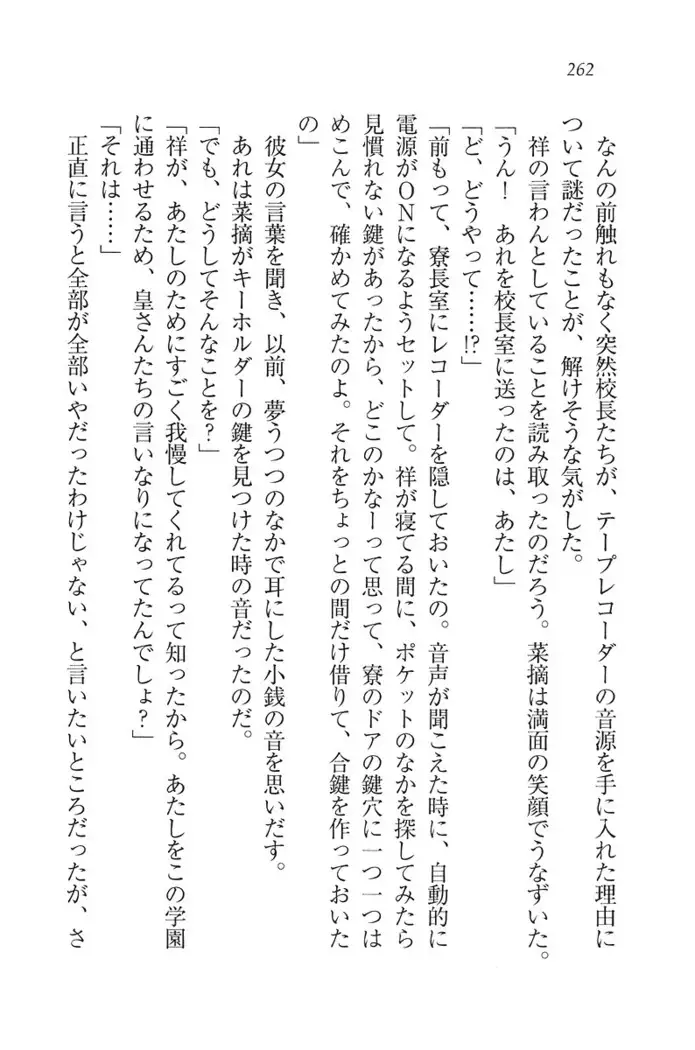 262
なんの前触れもなく突然校長たちが、テープレコーダーの音源を手に入れた理由に
ついて謎だったことが、解けそうな気がした。
祥の言わんとしていることを読み取ったのだろう。菜摘は満面の笑顔でうなずいた。
「うん！　あれを校長室に送ったのは、あたし」
「ど、どうやって……!?」
「前もって、寮長室にレコーダーを隠しておいたの。音声が聞こえた時に、自動的に
電源がＯＮになるようセットして。祥が寝てる間に、ポケットのなかを探してみたら
見慣れない鍵があったから、どこのかなーって思って、寮のドアの鍵穴に一つ一つは
めこんで、確かめてみたのよ。それをちょっとの間だけ借りて、合鍵を作っておいた
の」
彼女の言葉を聞き、以前、夢うつつのなかで耳にした小銭の音を思いだす。
あれは菜摘がキーホルダーの鍵を見つけた時の音だったのだ。
「でも、どうしてそんなことを？」
「祥が、あたしのためにすごく我慢してくれてるって知ったから。あたしをこの学園
に通わせるため、皇さんたちの言いなりになってたんでしょ？」
「それは……」
正直に言うと全部が全部いやだったわけじゃない、と言いたいところだったが、さ